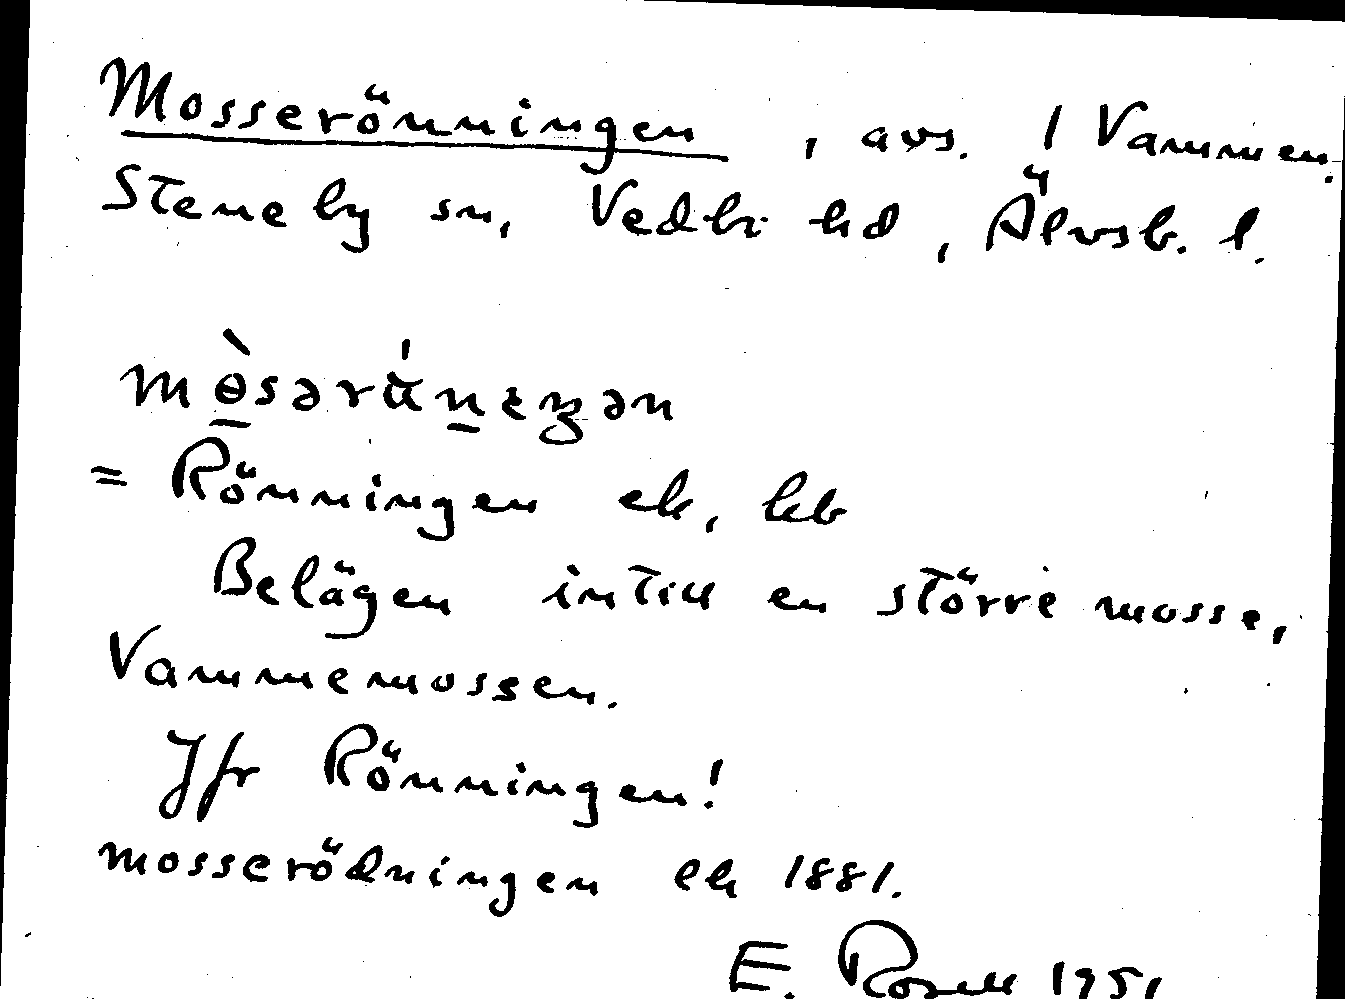 Mosserönningen, avs. / Vammen.
Steneby sn, Vedbo hd, Älvsb. l.
= Rönningen ek, hb
Belägen intill en större mosse,
Vammemossen.
Jfr Rönningen!
Mosserödningen ek 1881.
E. Rosell 1951